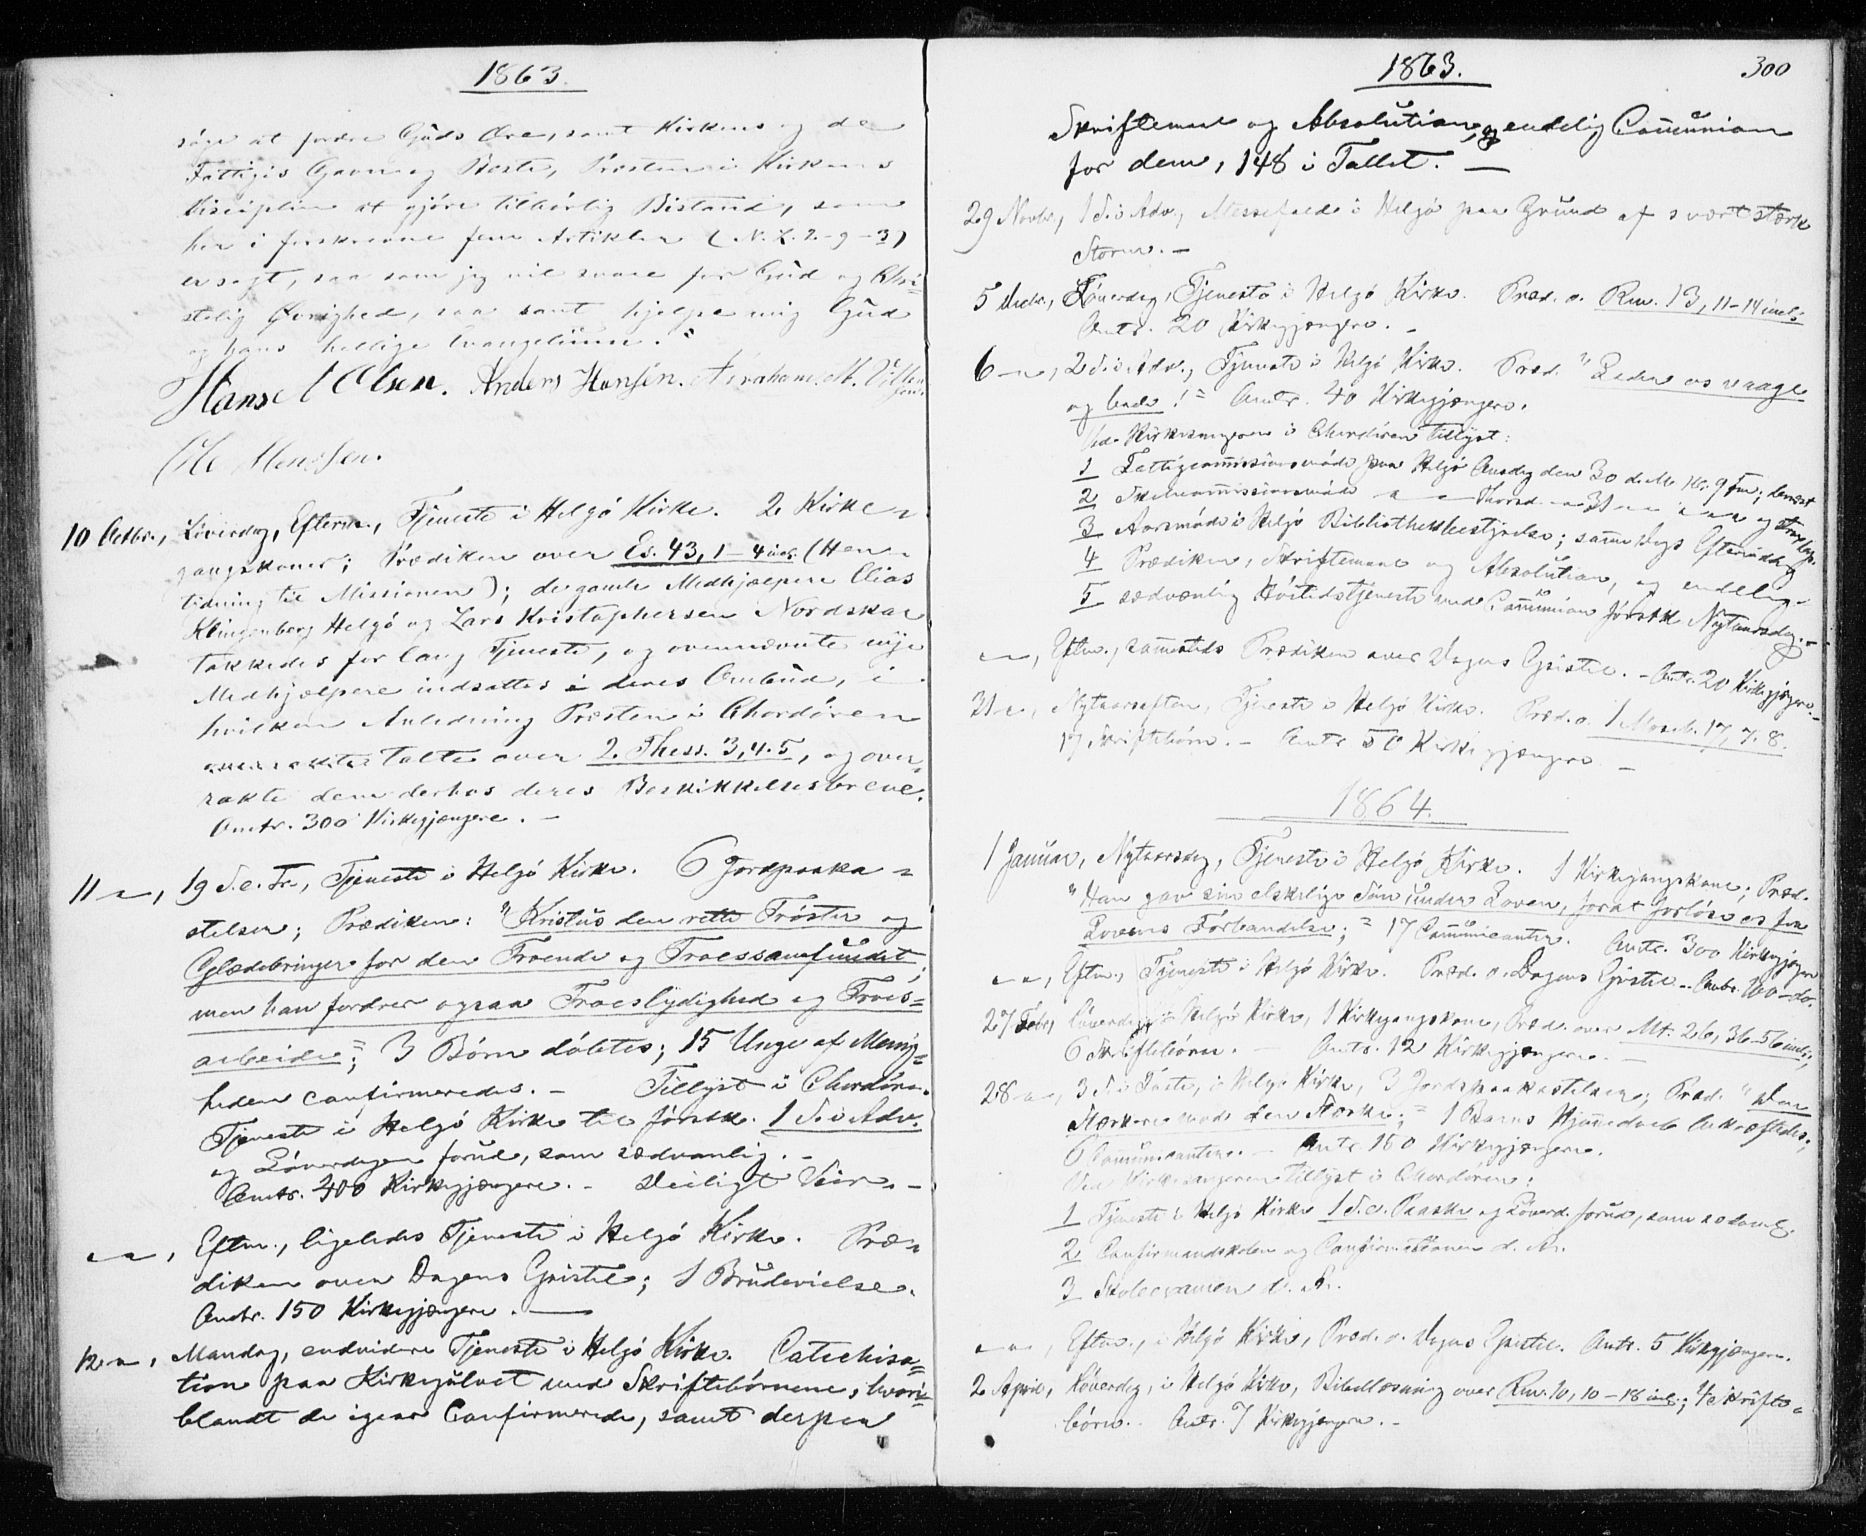 1863.
søge at fordre Guds Ære, samt Kirkens og de
Fattiges Gavn og Beste, Præsten i Kirkens
Disciplin at gjøre tilbørlig Bistand, som
her i forskrevne fem Artikler (N. L. 2-9-3)
er sagt, saa som jeg vil svare for Gud og Chri-
stelig Øvrighed, saa sant hjelpe mig Gud
og hans hellige Evangelium."
Hans Olsen. Anders Hansen. Abraham M.
Ole Monssen.
10 Octbr., Løverdag, Efterm., Tjeneste i Helgø Kirke. 2 Kirke-
gangskoner; Prædiken over Es. 43, 1-4 incl. (Hen-
tidning til Missionen); de gamle Medhjælpere Elias
Klingenberg Helgø og Lars Kristophersen Nordskar
takkedes for lang Tjeneste, og ovennævnte nye
Medhjælpere indsattes i deres Ombud, i
hvilken Anledning Præsten i Chordøren
talte over 2. Thess. 3, 4-5, og over-
rakte dem derhos deres Beskikkelsesbreve.
Omtr. 300 Kirkegjængere. -
11 -"-, 19 S. e. Tr., Tjeneste i Helgø Kirke. 6 Jordpaaka-
stelser; Prædiken: "Kristus den rette Trøster og
Glædebringer for den Troende og Troessamfundet,
men han fordrer ogsaa Troeslydighed og Troes-
arbeide"; 3 Børn døbtes; 15 Unge af Menig-
heden confirmeredes. - Tillyst i Chordøren:
Tjeneste i Helgø Kirke til førstk. 1 S. i Adv.
og Løverdagen forud, som sædvanlig. -
Omtr. 400 Kirkegjængere. - Deiligt Veir. -
-"-, Eftm., ligeledes Tjeneste i Helgø Kirke. Præ-
diken over Dagens Epistel; 1 Brudevielse.
Omtr. 150 Kirkegjængere. -
12 -"-, Mandag, endvidere Tjeneste i Helgø Kirke. Catechisa-
tion paa Kirkegulvet med Skriftebørnene, hvori-
blandt de igaar Confirmerede, samt derpaa
1863.
300
Skriftemaal og Absolution, og endelig Communion
for dem, 148 i Tallet. -
29 Novbr., 1 S. i Adv., Messefald i Helgø paa Grund af svært stærk
Storm. -
5 Decbr., Løverdag, Tjeneste i Helgø Kirke. Præd. o. Rom. 13, 11-14 incl.
Omtr. 20 Kirkegjængere. -
6 -"-, 2 S. i Adv., Tjeneste i Helgø Kirke. Præd. "Lader os vaage
og bede!" Omtr. 40 Kirkegjængere.
Ved Kirkesangeren i Chordøren tillyst:
1 Fattigcommissionsmøde paa Helgø Onsdag den 30 d. M. Kl. 9 Fm; dernæst
2 Skolecommissionsmøde -"- Thorsd. -"- 31 -"- og strax
3 Aarsmøde i Helgø Bibliothekbestyrelse; samme Dags
4 Prædiken, Skriftemaal og Absolution, og endelig
5 sædvanlig Høitidstjeneste med Communion førstk Nytaarsdag. -
-"-, Eftm., sammesteds Prædiken over Dagens Epistel. - Omtr. 20 Kirkegjængere. -
31 -"-, Nytaarsaften, Tjeneste i Helgø Kirke. Præd. o. 1 Moseb. 17, 7. 8.
17 Skriftebørn. - Omtr 50 Kirkegjængere -
1864.
1 Januar, Nytaarsdag, Tjeneste i Helgø Kirke. 1 Kirkegangskone; Præd.
"Han gav sin elskelige Søn under Loven, for at forløse os fra
Lovens Forbandelse;" 17 Communicanter. Omtr. 300 Kirkegjængere
-"-, Eftm., Tjeneste i Helgø Kirke. Præd. o. Dagens Epistel - Omtr. 100 - do.
27 Febr, Løverdag, i Helgø Kirke, 1 Kirkegangskone, Præd. over Mt. 26, 36-56 incl;
6 Skriftebørn. - Omtr. 12 Kirkegjængere. -
28 -"-, 3 S. i Faste, i Helgø Kirke, 3 Jordspaakastelser; Præd. "Den
Stærkere mod den Stærke;" 1 Barns Hjemmedaab bekræftedes;
6 Communicanter. - Omtr. 150 Kirkegjængere.
Ved Kirkesangeren tillyst i Chordøren:
1 Tjeneste i Helgø Kirke 1 S. e. Paaske og Løverd. forud, som sædvanl.
2 Confirmandskolen og Confirmationen d. A.
3 Skoleexamen d. A.
-"-, Eftm., i Helgø Kirke, Præd. o. Dagens Epistel. Omtr. 5 Kirkegjængere.
2 April, Løverdag, i Helgø Kirke, Bibellæsning over Rom. 10, 10-18 incl.; 4 Skrifte-
børn. Omtr. 7 Kirkegjængere. -